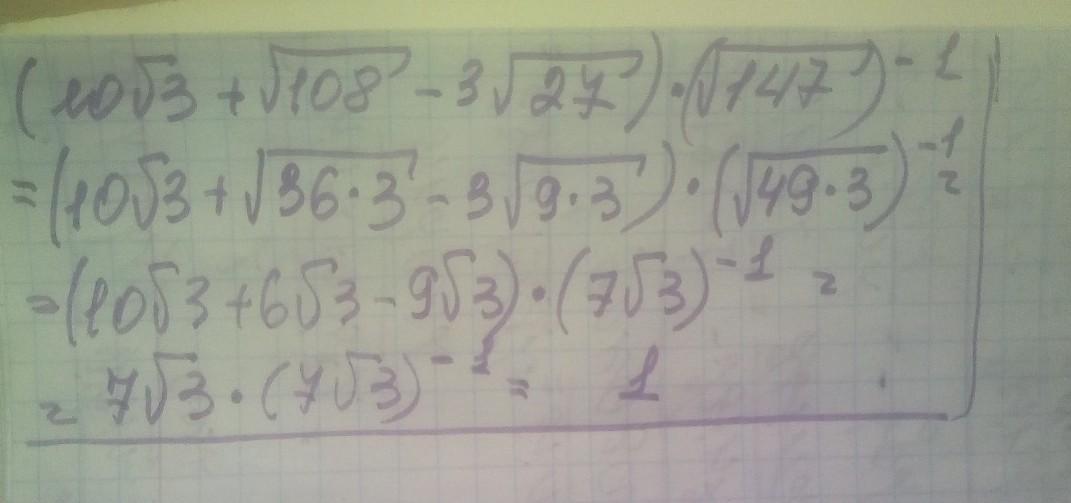 (10√3 + √108 - 3√27) · (√147)⁻¹
= (10√3 + √36·3 - 3√9·3) · (√49·3)⁻¹ =
= (10√3 + 6√3 - 9√3) · (7√3)⁻¹ =
= 7√3 · (7√3)⁻¹ = 1